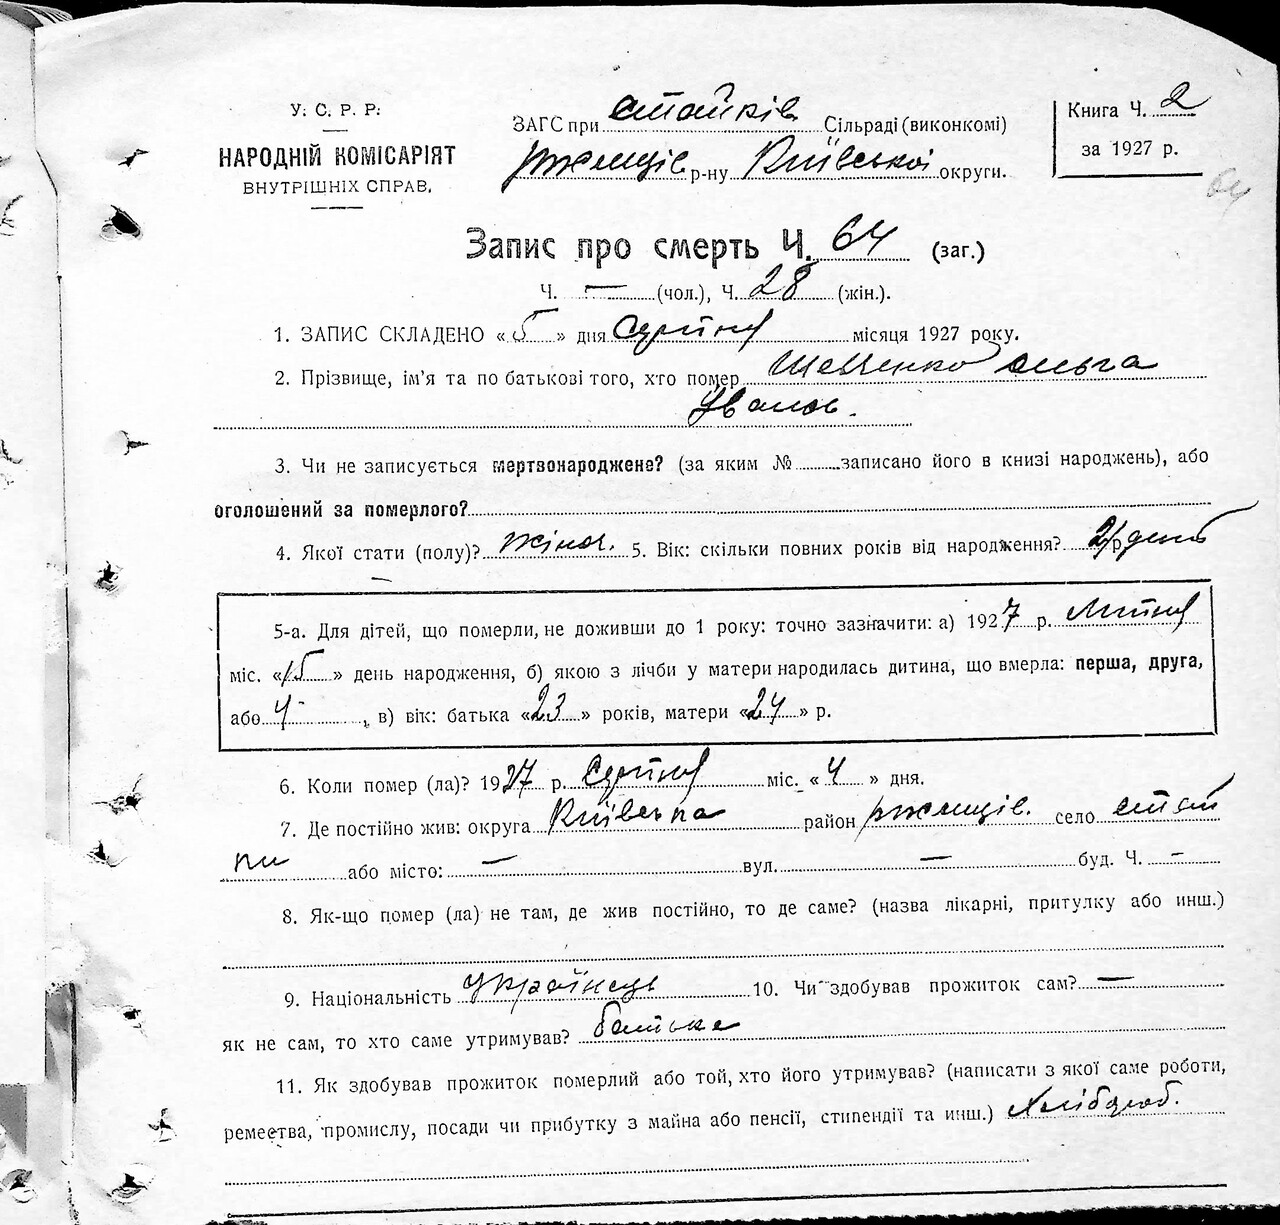 У. С. Р. Р.
НАРОДНІЙ КОМІСАРІЯТ
ВНУТРІШНІХ СПРАВ.
ЗАГС при Стайків Сільраді (виконкомі)
Ржищів р-ну Київської округи.
Книга Ч. 2
за 1927 р.
64
Запис про смерть Ч. 64 (заг.)
Ч. — (чол.), Ч. 28 (жін.).
1. ЗАПИС СКЛАДЕНО « 5 » дня Серпня місяця 1927 року.
2. Прізвище, ім'я та по батькові того, хто помер Шевченко Ольга
Іванов.
3. Чи не записується мертвонароджене? (за яким № записано його в книзі народжень), або
оголошений за померлого?
4. Якої стати (полу)? жіноч. 5. Вік: скільки повних років від народження? 21 день
5-а. Для дітей, що померли, не доживши до 1 року: точно зазначити: а) 1927 р. Липня
міс. «15» день народження, б) якою з лічби у матери народилась дитина, що вмерла: перша, друга,
або , в) вік: батька «23» років, матери «24» р.
6. Коли помер (ла)? 1927 р. Серпня міс. «4» дня.
7. Де постійно жив: округа Київська район ржищів. село стай
ки або місто: — вул. — буд. Ч. —
8. Як-що помер (ла) не там, де жив постійно, то де саме? (назва лікарні, притулку або инш.)
9. Національність українець 10. Чи здобував прожиток сам? —
як не сам, то хто саме утримував? батько
11. Як здобував прожиток померлий або той, хто його утримував? (написати з якої саме роботи,
ремества, промислу, посади чи прибутку з майна або пенсії, стипендії та инш.) Хлібороб.